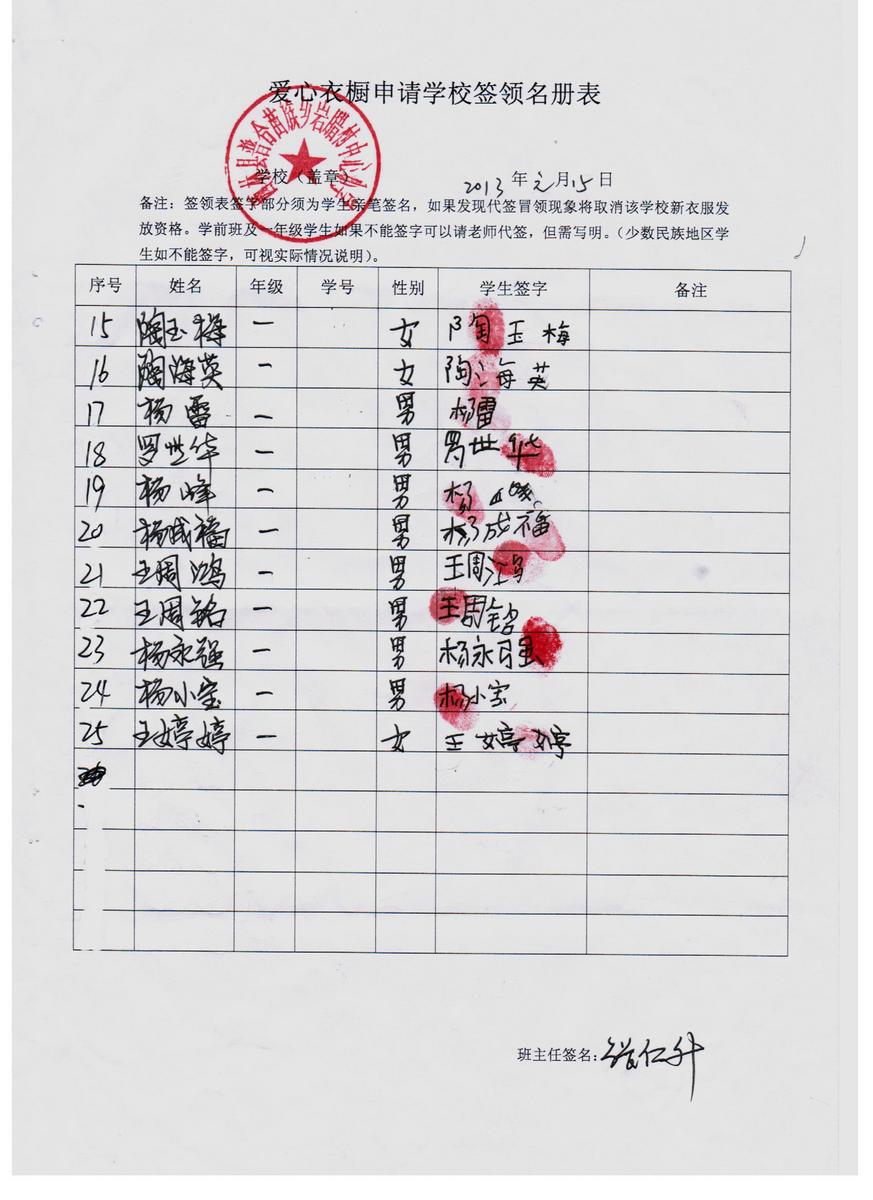 爱心衣橱申请学校签领名册表
学校（盖章） 2013 年 元 月 15 日
备注：签领表签字部分须为学生亲笔签名，如果发现代签冒领现象将取消该学校新衣服发
放资格。学前班及一年级学生如果不能签字可以请老师代签，但需写明。（少数民族地区学
生如不能签字，可视实际情况说明）。
序号 姓名 年级 学号 性别 学生签字 备注
15 陶玉梅 一 女 陶玉梅
16 陶海英 一 女 陶海英
17 杨雷 一 男 杨雷
18 罗世华 一 男 罗世华
19 杨峰 一 男 杨峰
20 杨成福 一 男 杨成福
21 王周鸿 一 男 王周鸿
22 王周铭 一 男 王周铭
23 杨永强 一 男 杨永强
24 杨小宝 一 男 杨小宝
25 王婷婷 一 女 王婷婷
班主任签名：仁升